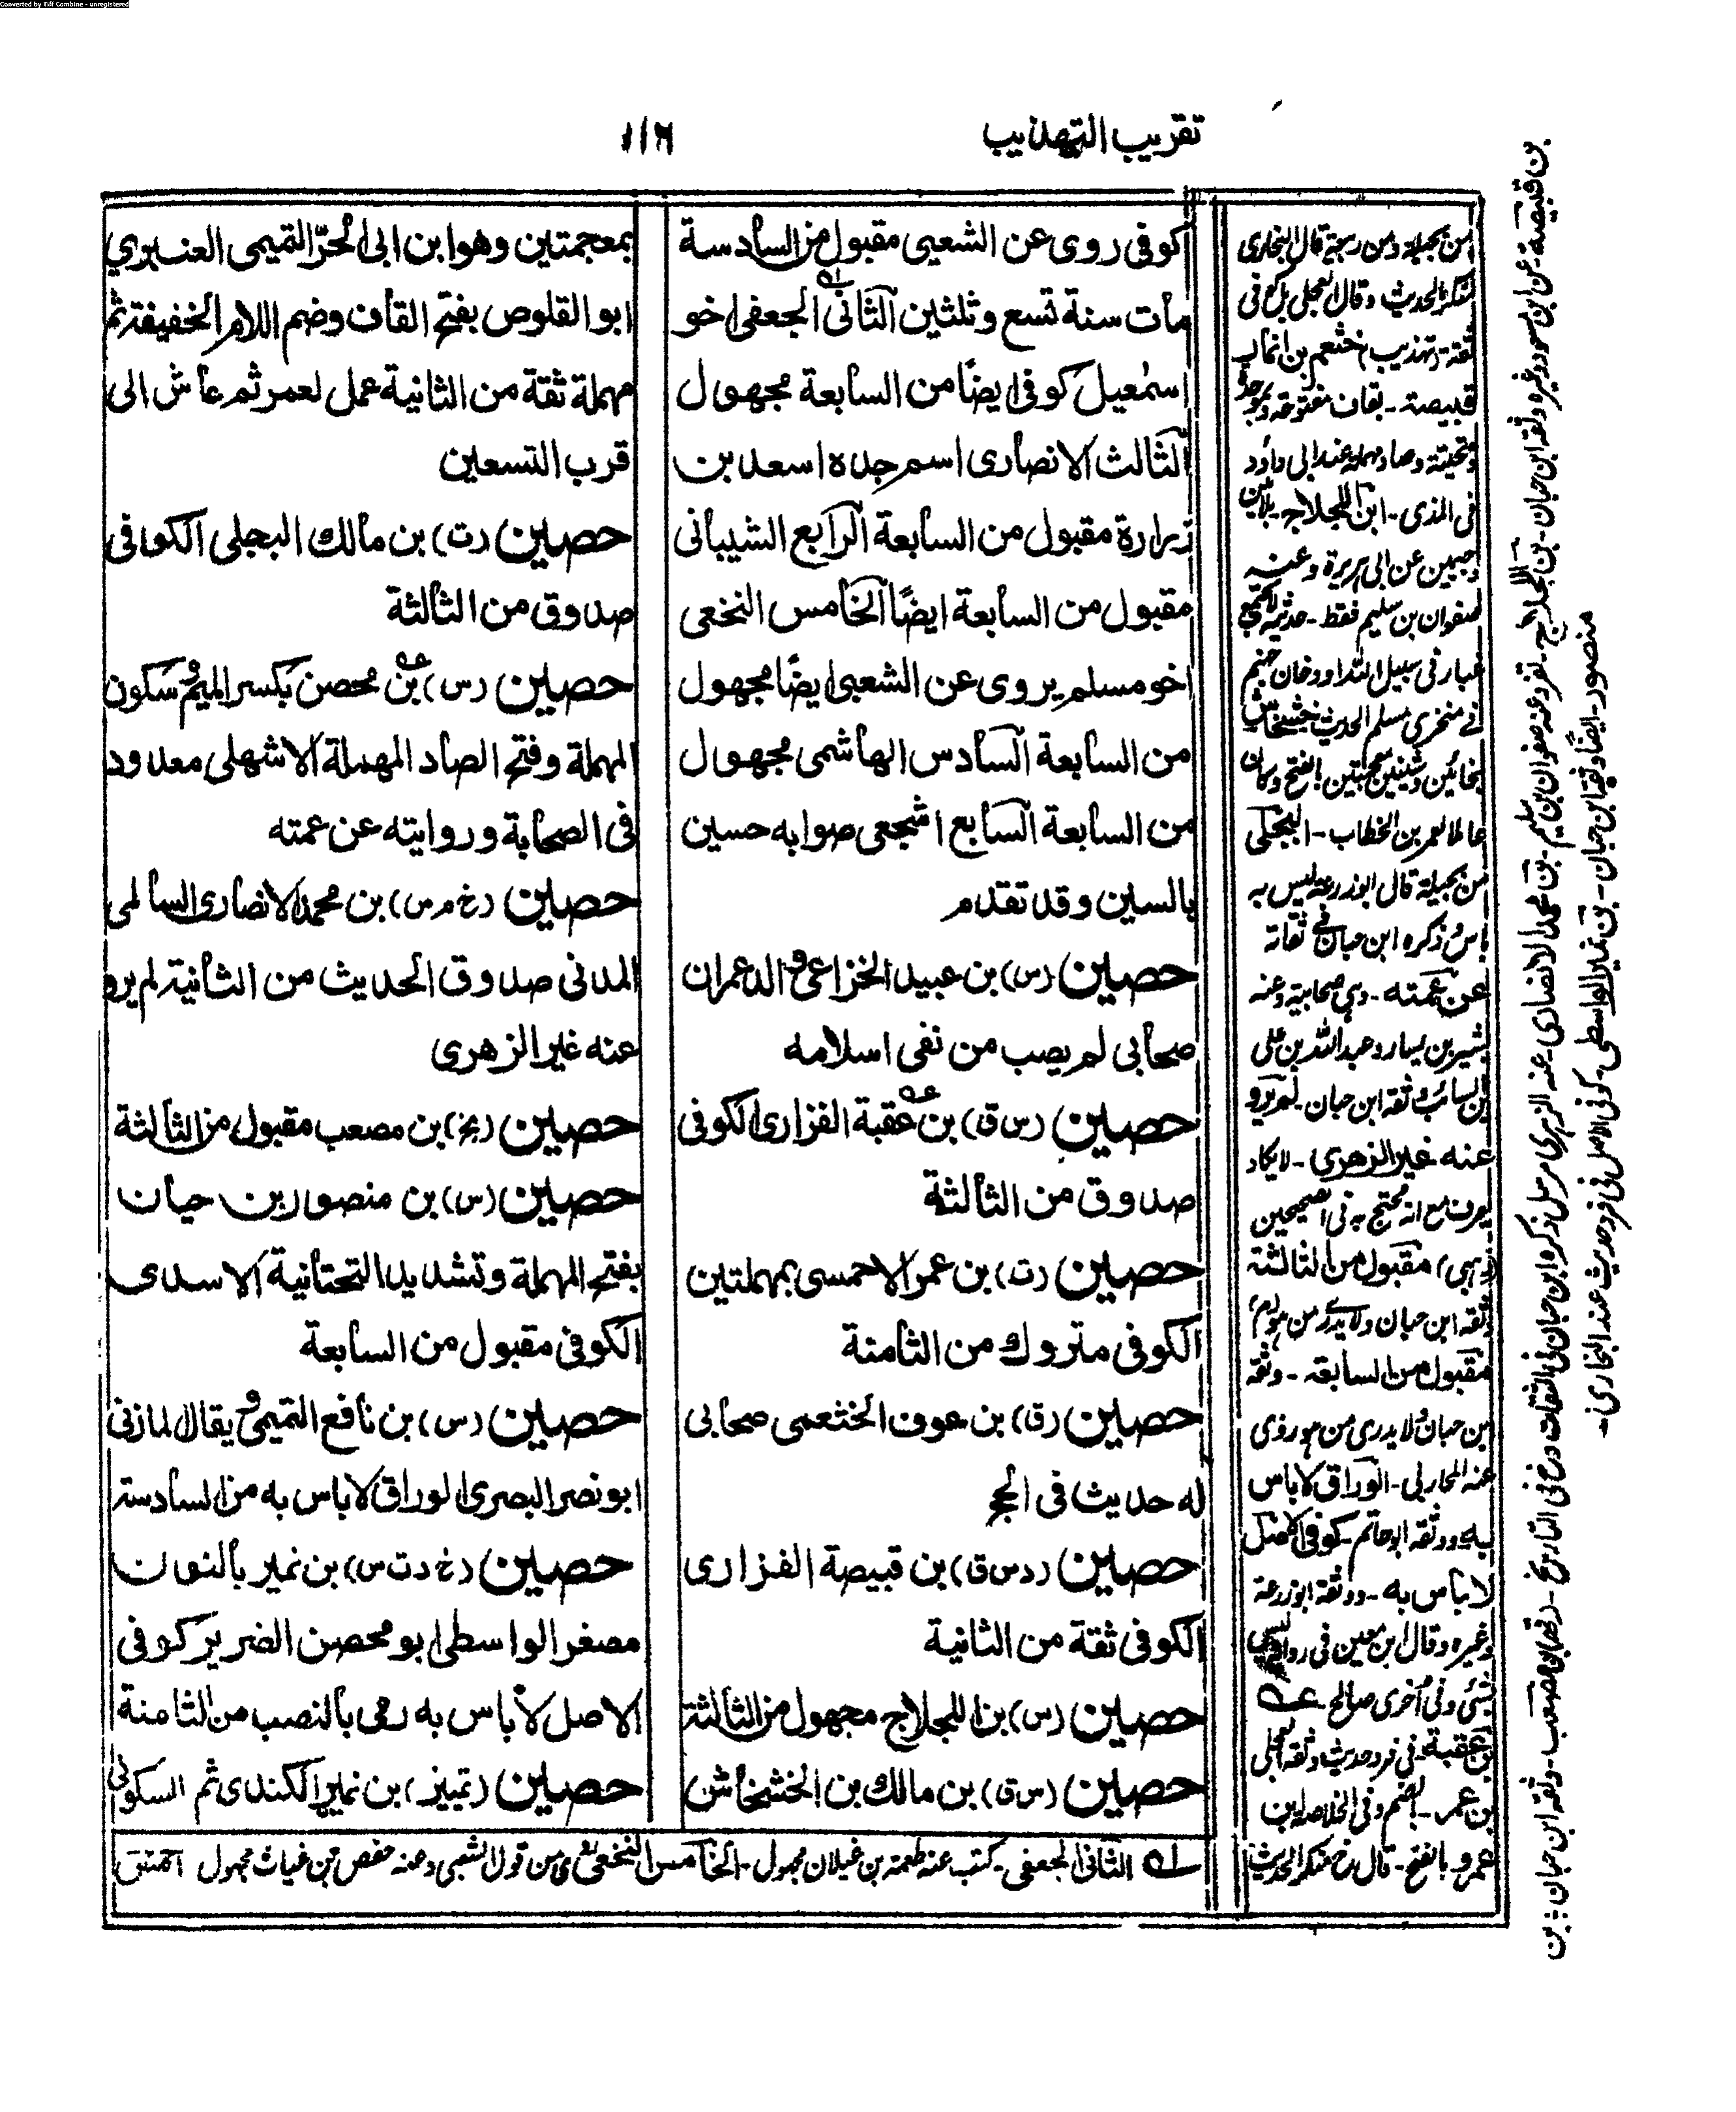 Converted by Tiff Combine - unregistered
تقريب التهذيب
١١٦
كوفى روى عن الشعبى مقبول من السادسة
مات سنة تسع وثلثين الثانى الجعفى اخو
اسمٰعيل كوفى ايضًا من السابعة مجهول
الثالث الانصارى اسم جده اسعد بن
زرارة مقبول من السابعة الرابع الشيبانى
مقبول من السابعة ايضًا الخامس النخعى
اخو مسلم يروى عن الشعبى ايضًا مجهول
من السابعة السادس الهاشمى مجهول
من السابعة السابع اشجعى صوابه حسين
بالسين وقد تقدم
حصين (س) بن عبيد الخزاعى والد عمران
صحابى لم يصب من نفى اسلامه
حصين (س ق) بن عقبة الفزارى الكوفى
صدوق من الثالثة
حصين (ت) بن عمر الاحمسى بمهملتين
الكوفى متروك من الثامنة
حصين (ق) بن عوف الخثعمى صحابى
له حديث فى الحج
حصين (د س ق) بن قبيصة الفزارى
الكوفى ثقة من الثانية
حصين (س) بن اللجلاج مجهول من الثالثة
حصين (س ق) بن مالك بن الخشخاش
بمعجمتين وهو ابن ابى الحرّ التميمى العنبرى
ابو القلوص بفتح القاف وضم اللام الخفيفة ثم
مهملة ثقة من الثانية عمل لعمر ثم عاش الى
قرب التسعين
حصين (ت) بن مالك البجلى الكوفى
صدوق من الثالثة
حصين (س) بن محصن بكسر الميم وسكون
المهملة وفتح الصاد المهملة الاشهلى معدود
فى الصحابة وروايته عن عمته
حصين (خ م س) بن محمد الانصارى السالمى
المدنى صدوق الحديث من الثانية لم يرو
عنه غير الزهرى
حصين (بخ) بن مصعب مقبول من الثالثة
حصين (س) بن منصور بن حيان
بفتح المهملة وتشديد التحتانية الاسدى
الكوفى مقبول من السابعة
حصين (س) بن نافع التميمى ويقال المازنى
ابو نصر البصرى الوراق لا باس به من السادسة
حصين (خ د ت س) بن نمير بالنون
مصغر الواسطى ابو محصن الضرير كوفى
الاصل لا باس به رمى بالنصب من الثامنة
حصين (تمييز) بن نمير الكندى ثم السكونى
الثانى الجعفى - كتب عنه طعمة بن غيلان مجهول - الخامس النخعى من قول الشعبى وعنه حفص بن غياث مجهول
من بجيلة ومن ربيعة قال البخارى
منكر الحديث وقال العجلى كوفى
ثقة (تهذيب) خثعم بن انمار
قبيصة - بقاف مفتوحة
وتحتية وصاد مهملة عند ابى داؤد
فى المذى - ابن اللجلاج -
وجيمين عن ابى هريرة وعنه
صفوان بن سليم فقط - حديثه
غبار فى سبيل الله ودخان جهنم
فى منخرى مسلم الحديث خشخاش
بخائين وشينين معجمتين بالفتح وكان
عاملا لعمر بن الخطاب - البجلى
من بجيلة قال ابو زرعة ليس به
باس وذكره ابن حبان فى ثقاته
عن عمته - وهى صحابية وعنه
بشير بن يسار وعبد الله بن على
بن السائب وثقه ابن حبان - لم يرو
عنه غير الزهرى - لا يكاد
يعرف مع انه محتج به فى الصحيحين
(ذهبى) مقبول من الثالثة
وثقه ابن حبان ولا يدرى من هو
مقبول من السابعة - وثقه
ابن حبان ولا يدرى من هو روى
عنه المحاربى - الوراق لا باس
به ووثقه ابو حاتم - كوفى الاصل
لا باس به - ووثقه ابو زرعة
وغيره وقال ابن معين فى رواية ليس
بشئ وفى اخرى صالح
بن عقبة فى فرد حديث وثقه العجلى
بن عمر - بالضم وفى الخلاصة ابن
عمرو بالفتح - قال خ منكر الحديث
بن قبيصة عن ابن مسعود وغيره وثقه ابن حبان - بن اللجلاج - تفرد عنه صفوان بن سليم - بن محمد الانصارى - عنه الزهرى مرسل ذكره ابن حبان فى الثقات و خ فى التاريخ - بن مصعب - وثقه ابن حبان: بن
منصور - ايضًا وثقه ابن حبان - بن نمير الواسطى - كوفى الاصل فى فرد حديث عند البخارى -